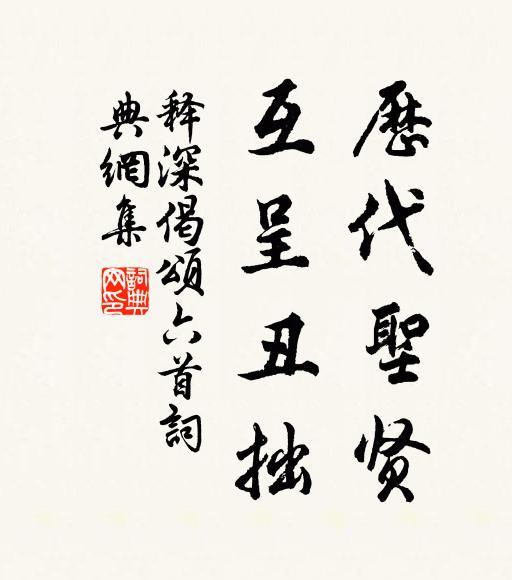 歷代聖贤
互呈丑拙
释深偈頌六首詞
典網集
詞典
网印